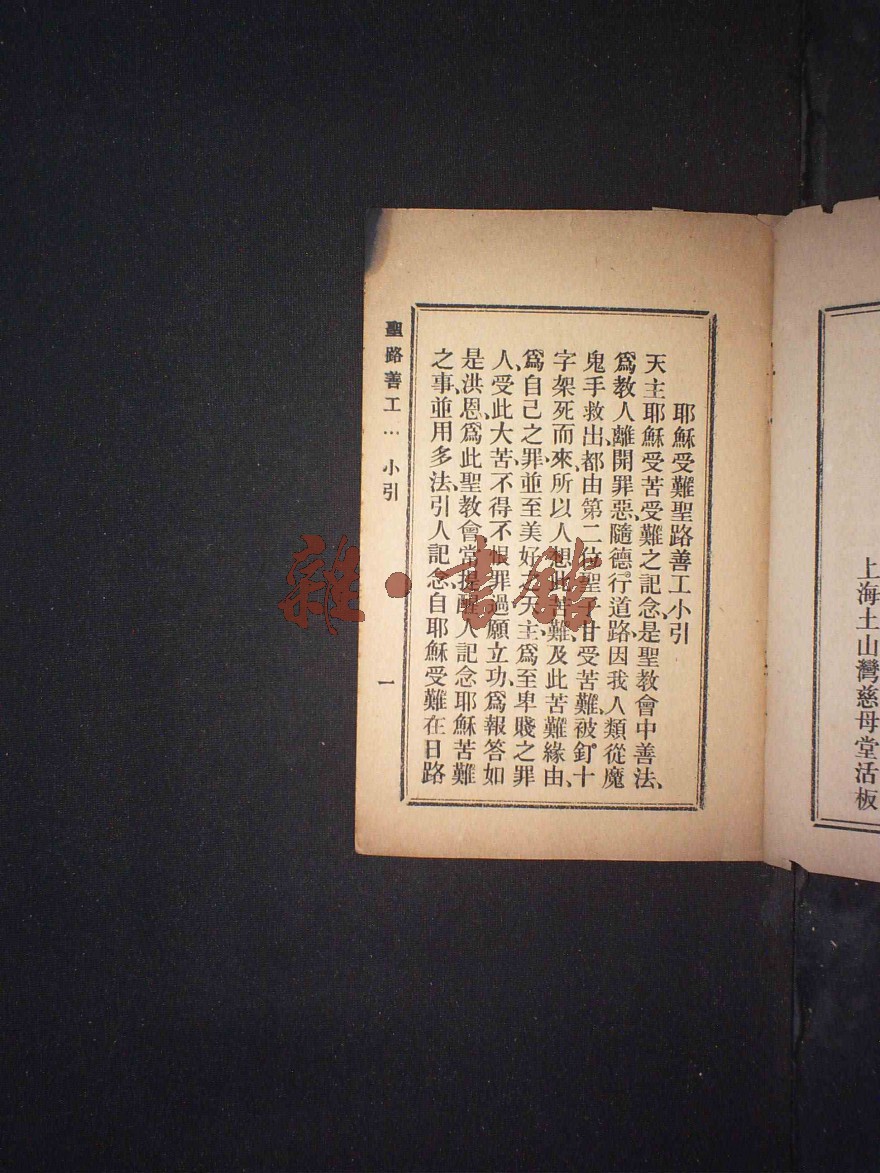 上海土山灣慈母堂活板
耶穌受難聖路善工小引
天主耶穌受苦受難之記念、是聖教會中善法、
爲教人離開罪惡、隨德行道路因我人類從魔
鬼手救出、都由第二位聖子甘受苦難、被釘十
字架死而來所以人想此苦難、及此苦難緣由、
爲自己之罪、並至美好之天主、爲至卑賤之罪
人、受此大苦、不得不恨罪過願立功、爲報答如
是洪恩、爲此聖教會常提醒人記念耶穌苦難
之事、並用多法、引人記念、自耶穌受難在日路
聖路善工…小引
一
雜·書館